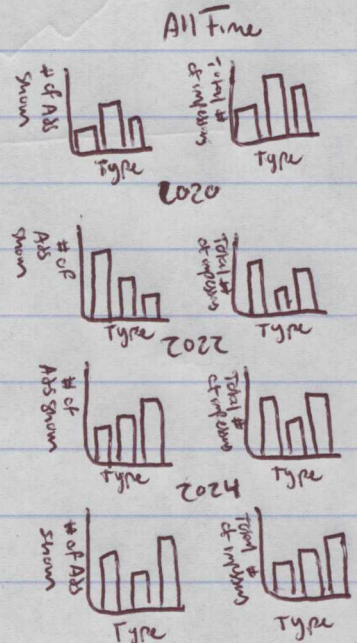 All Time
# of Ads
Shown
Type
Total #
of impressions
Type
2020
# of
Ads
Shown
Type
Total #
of impressions
Type
2022
# of
Ads shown
Type
Total #
of impressions
Type
2024
# of Ads
Shown
Type
Total
#
of impressions
Type